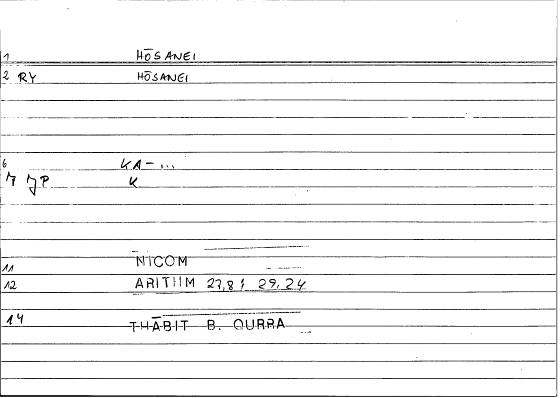 1 HŌSANEI
2 RY HŌSANEI
6 KA-...
7 JP K
11 NICOM
12 ARITHM 27,8; 29,24
14 THĀBIT B. QURRA